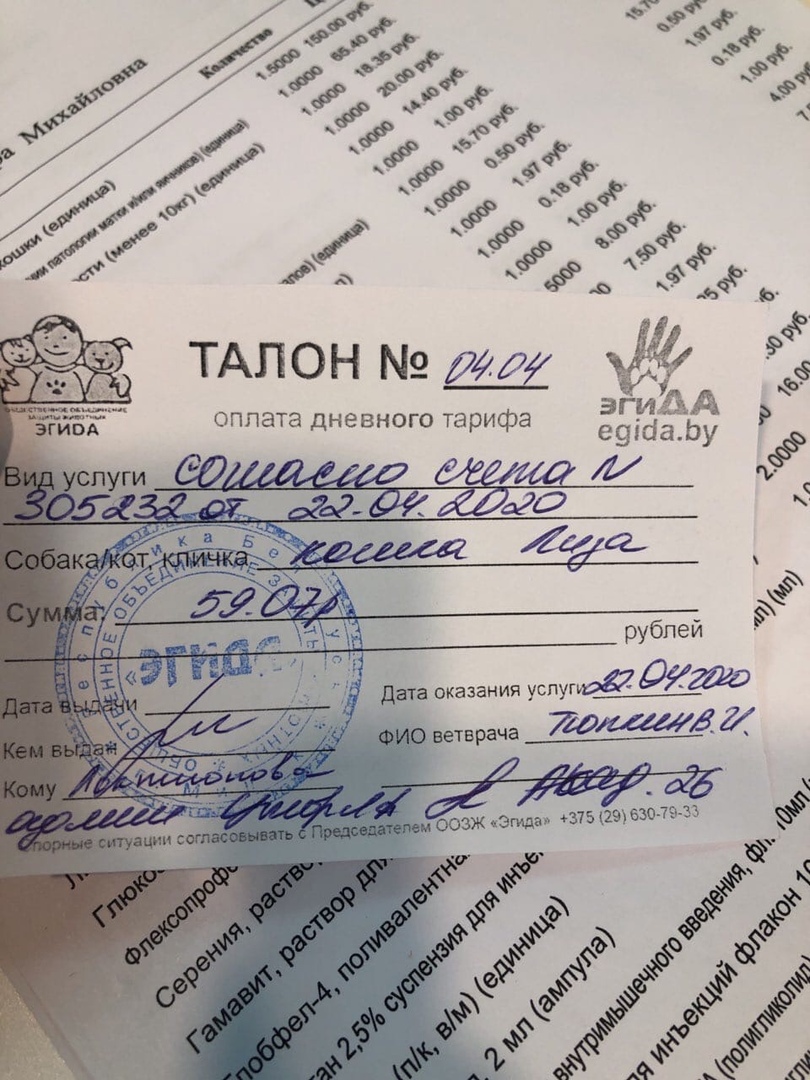 ра Михайловна
Количество
1.5000 150.00 руб.
1.0000 65.40 руб.
1.0000 18.35 руб.
1.0000 20.00 руб.
1.0000 14.40 руб.
1.0000 1.00 руб.
1.0000 15.70 руб.
1.0000 0.50 руб.
1.0000 1.97 руб.
1.0000 0.18 руб.
1.0000 1.00 руб.
5000 8.00 руб.
7.50 руб.
1.97 руб.
15.70
0.50 руб.
1.97 руб.
0.18 руб.
1.00 руб.
4.00 руб.
кошки (единица)
ии патологии матки и/или яичников) (единица)
сти (менее 10кг) (единица)
(единица)
16.00
2.0000
ТАЛОН № 04.04
оплата дневного тарифа
ОБЩЕСТВЕННОЕ ОБЪЕДИНЕНИЕ
ЗАЩИТЫ ЖИВОТНЫХ
ЭГИДА
эгиДА
egida.by
Вид услуги согласно счета N
305232 от 22.04.2020
Собака/кот, кличка кошка Лиза
Сумма: 59.07р
рублей
«ЭГИДА»
Дата выдачи
Дата оказания услуги 22.04.2020
Кем выдан
ФИО ветврача Попкин В.И.
Кому
26
Спорные ситуации согласовывать с Председателем ООЗЖ «Эгида» +375 (29) 630-79-33
Глюкоз
Флексопроф
Серения, раство
Гамавит, раствор для
Глобфел-4, поливалентна
2,5% суспензия для инъе
(п/к, в/м) (единица)
2 мл (ампула)
внутримышечного введения, фл
я инъекций флакон 10
(полигликолид)